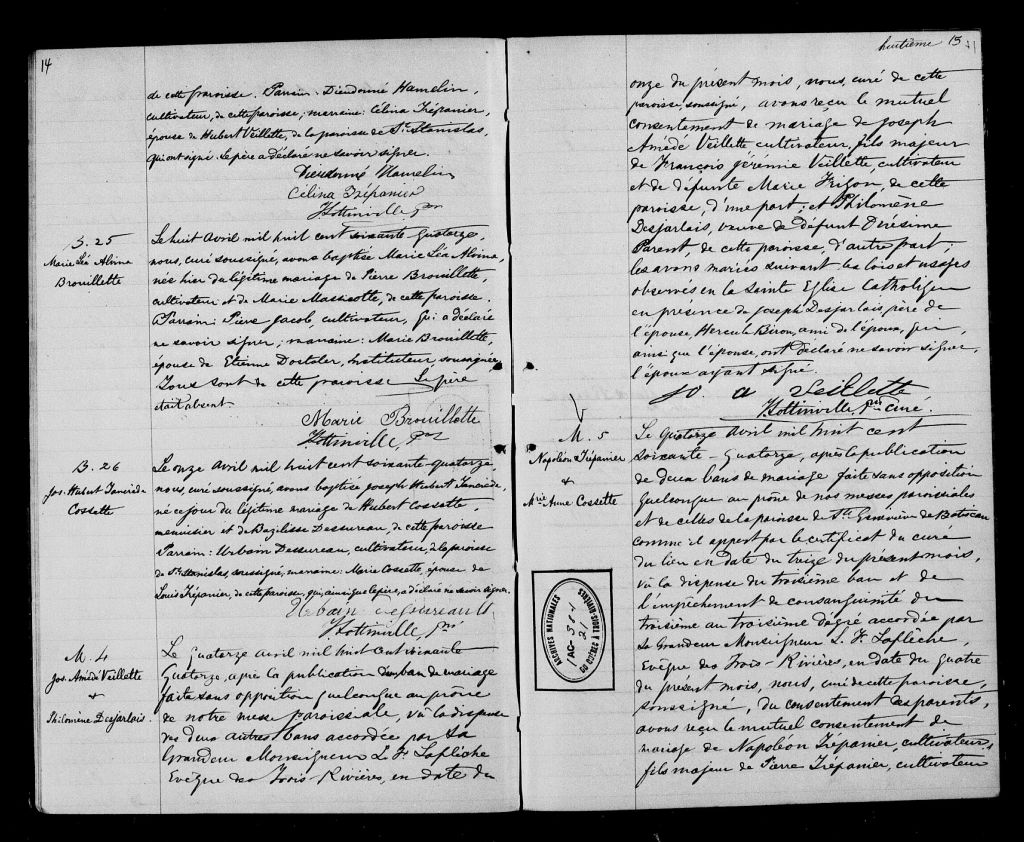 14
de cette paroisse. Parrain: Dieudonné Hamelin,
cultivateur, de cette paroisse; marraine: Célina Trépanier,
épouse de Hubert Veillette, de la paroisse de St. Stanislas,
qui ont signé. Le père a déclaré ne savoir signer.
Dieudonné Hamelin
Célina Trépanier
Hottinville, Ptre
B. 25
Marie Léa Alvina
Brouillette
Le huit Avril mil huit cent soixante Quatorze,
nous, curé soussigné, avons baptisé Marie Léa Alvina,
née hier du légitime mariage de Pierre Brouillette,
cultivateur et de Marie Massicotte, de cette paroisse.
Parrain: Pierre Jacob, cultivateur, qui a déclaré
ne savoir signer; marraine: Marie Brouillette,
épouse de Etienne Dostaler, Instituteur soussignée,
Tous sont de cette paroisse Le père
était absent.
Marie Brouillette
Hottinville, Ptre
B. 26
Jos. Hubert Tancrède
Cossette
Le onze Avril mil huit cent soixante-quatorze,
nous, curé soussigné, avons baptisé Joseph Hubert Tancrède,
né ce jour du légitime mariage de Hubert Cossette,
menuisier et de Bazilisse Dessureau, de cette paroisse
Parrain: Urbain Dessureau, cultivateur de la paroisse
de St. Stanislas, soussigné, marraine: Marie Cossette, épouse de
Louis Trépanier, de cette paroisse, qui, ainsi que le père, a déclaré ne savoir signer.
Urbain
Hottinville, Ptre
M. 4
Jos. Amédé Veillette
+
Philomène Desjarlais.
Le Quatorze Avril mil huit cent soixante
Quatorze, après la publication d'un ban de mariage
faite sans opposition quelconque au prône
de notre messe paroissiale, vû la dispense
des deux autres bans accordée par Sa
Grandeur Monseigneur L. F. Laflèche
Evêque des Trois-Rivières, en date du
huitième 15
onze du présent mois, nous, curé de cette
paroisse, soussigné, avons reçu le mutuel
consentement de mariage de Joseph
Amédé Veillette cultivateur, fils majeur
de François Jérémie Veillette, cultivateur
et de défunte Marie Frigon, de cette
paroisse, d'une part; et Philomène
Desjarlais, veuve de défunt Onésime
Parent, de cette paroisse, d'autre part;
les avons mariés suivant les lois et usages
observés en la Sainte Eglise Catholique
en présence de Joseph Desjarlais, père de
l'épouse, Hercule Biron, ami de l'époux, qui,
ainsi que l'épouse, ont déclaré ne savoir signer,
l'époux ayant signé.
J. A Veillette
Hottinville, Ptre Curé.
M. 5
Napoléon Trépanier
+
Mrie Anne Cossette
Le Quatorze Avril mil huit cent
soixante-Quatorze, après la publication
de deux bans de mariage faite sans opposition
quelconque au prône de nos messes paroissiales
et de celles de la paroisse de Ste Geneviève de Batiscan
comme il appert par le certificat du curé
du lieu en date du treize du présent mois,
vû la dispense du troisième ban et de
l'empêchement de consanguinité du
troisième au troisième degré accordée par
Sa Grandeur Monseigneur L. F. Laflèche,
Evêque des Trois-Rivières, en date du quatre
du présent mois, nous, curé de cette paroisse,
soussigné, du consentement des parents,
avons reçu le mutuel consentement de
mariage de Napoléon Trépanier, cultivateur,
fils majeur de Pierre Trépanier, cultivateur
ARCHIVES NATIONALES
DU QUÉBEC À TROIS-RIVIÈRES